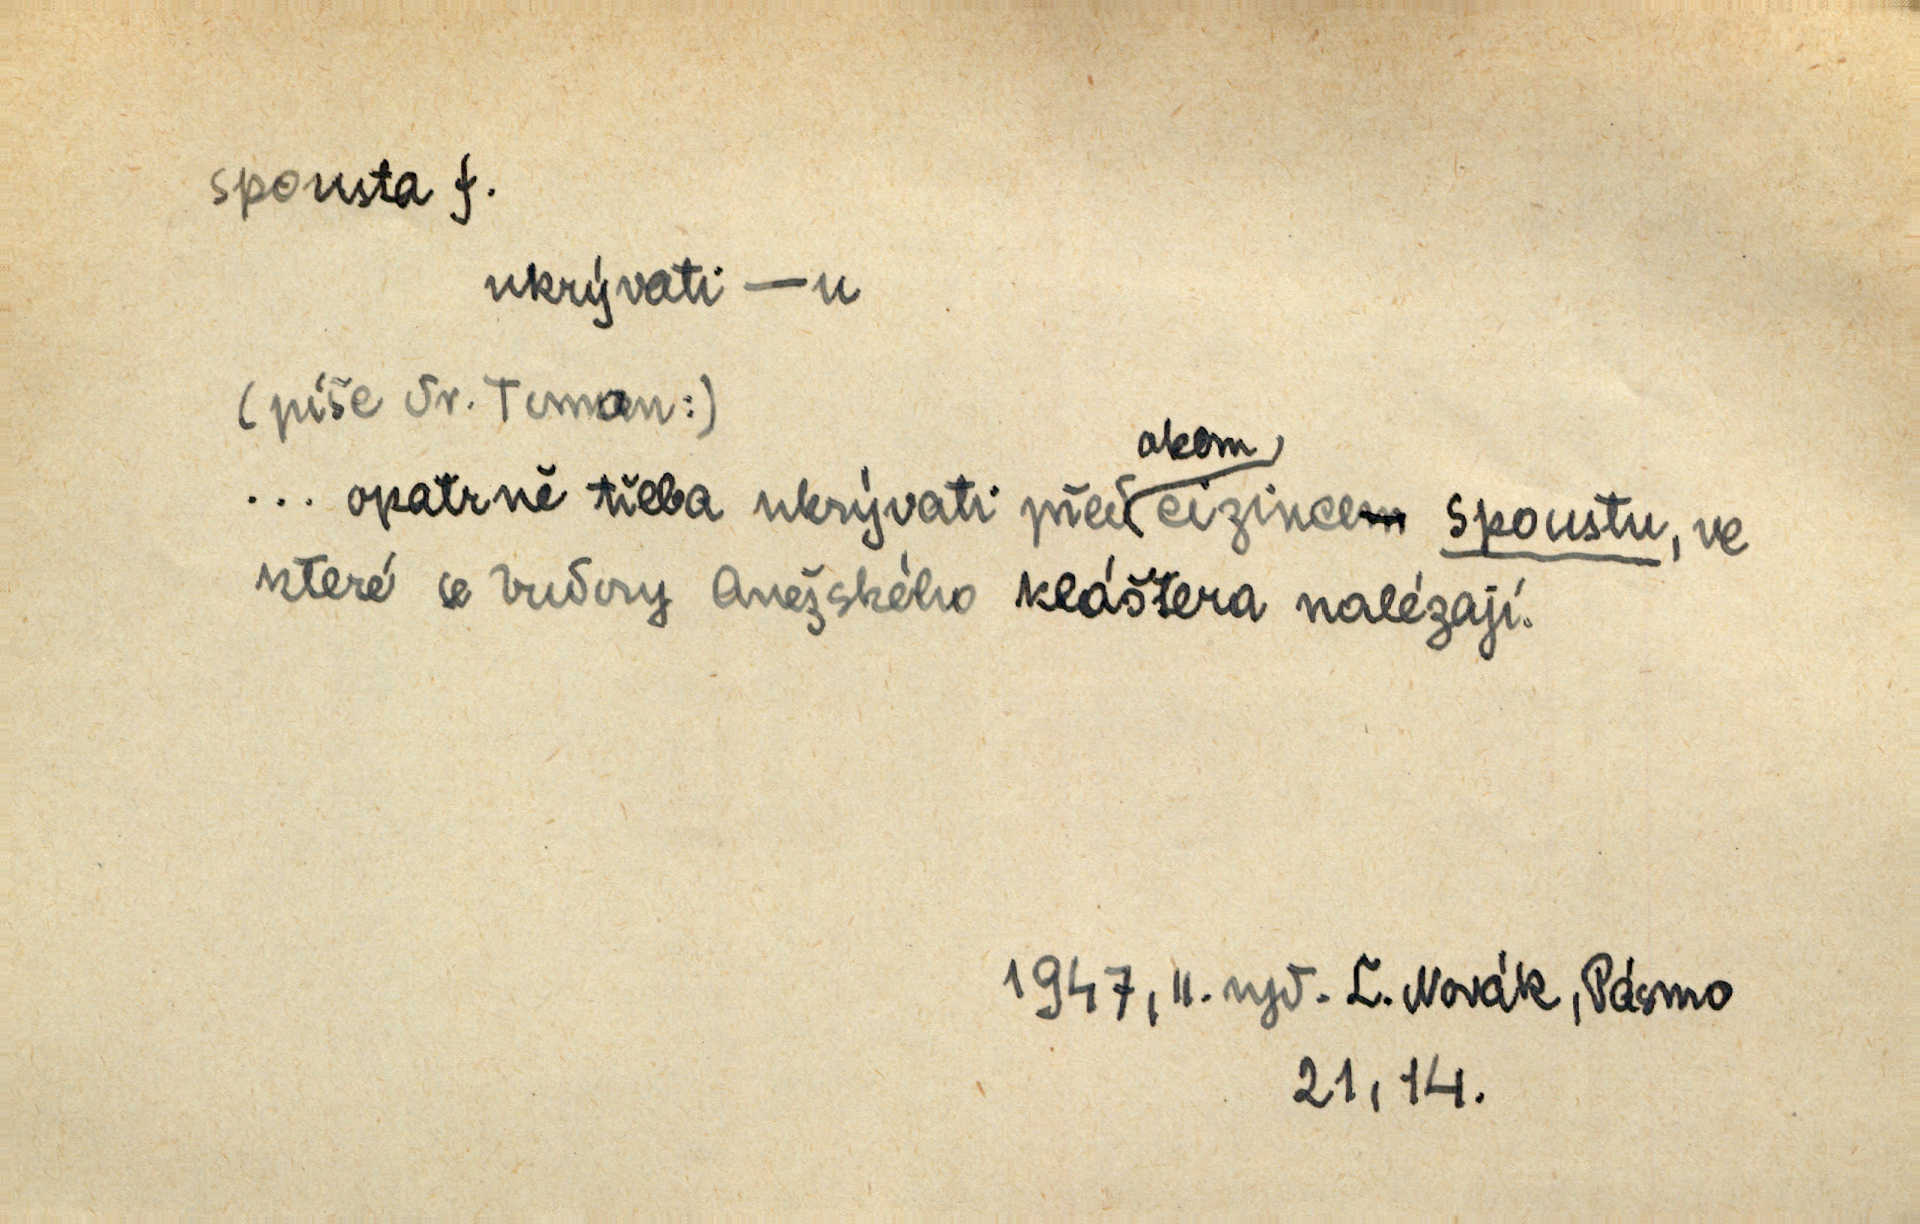 spousta f.
ukrývati — u
(píše dr. Toman:)
okem
... opatrně třeba ukrývati před cizince spoustu, ve
které se budovy Anežského kláštera nalézají.
1947, II. vyd. L. Novák, Pásmo
21, 14.